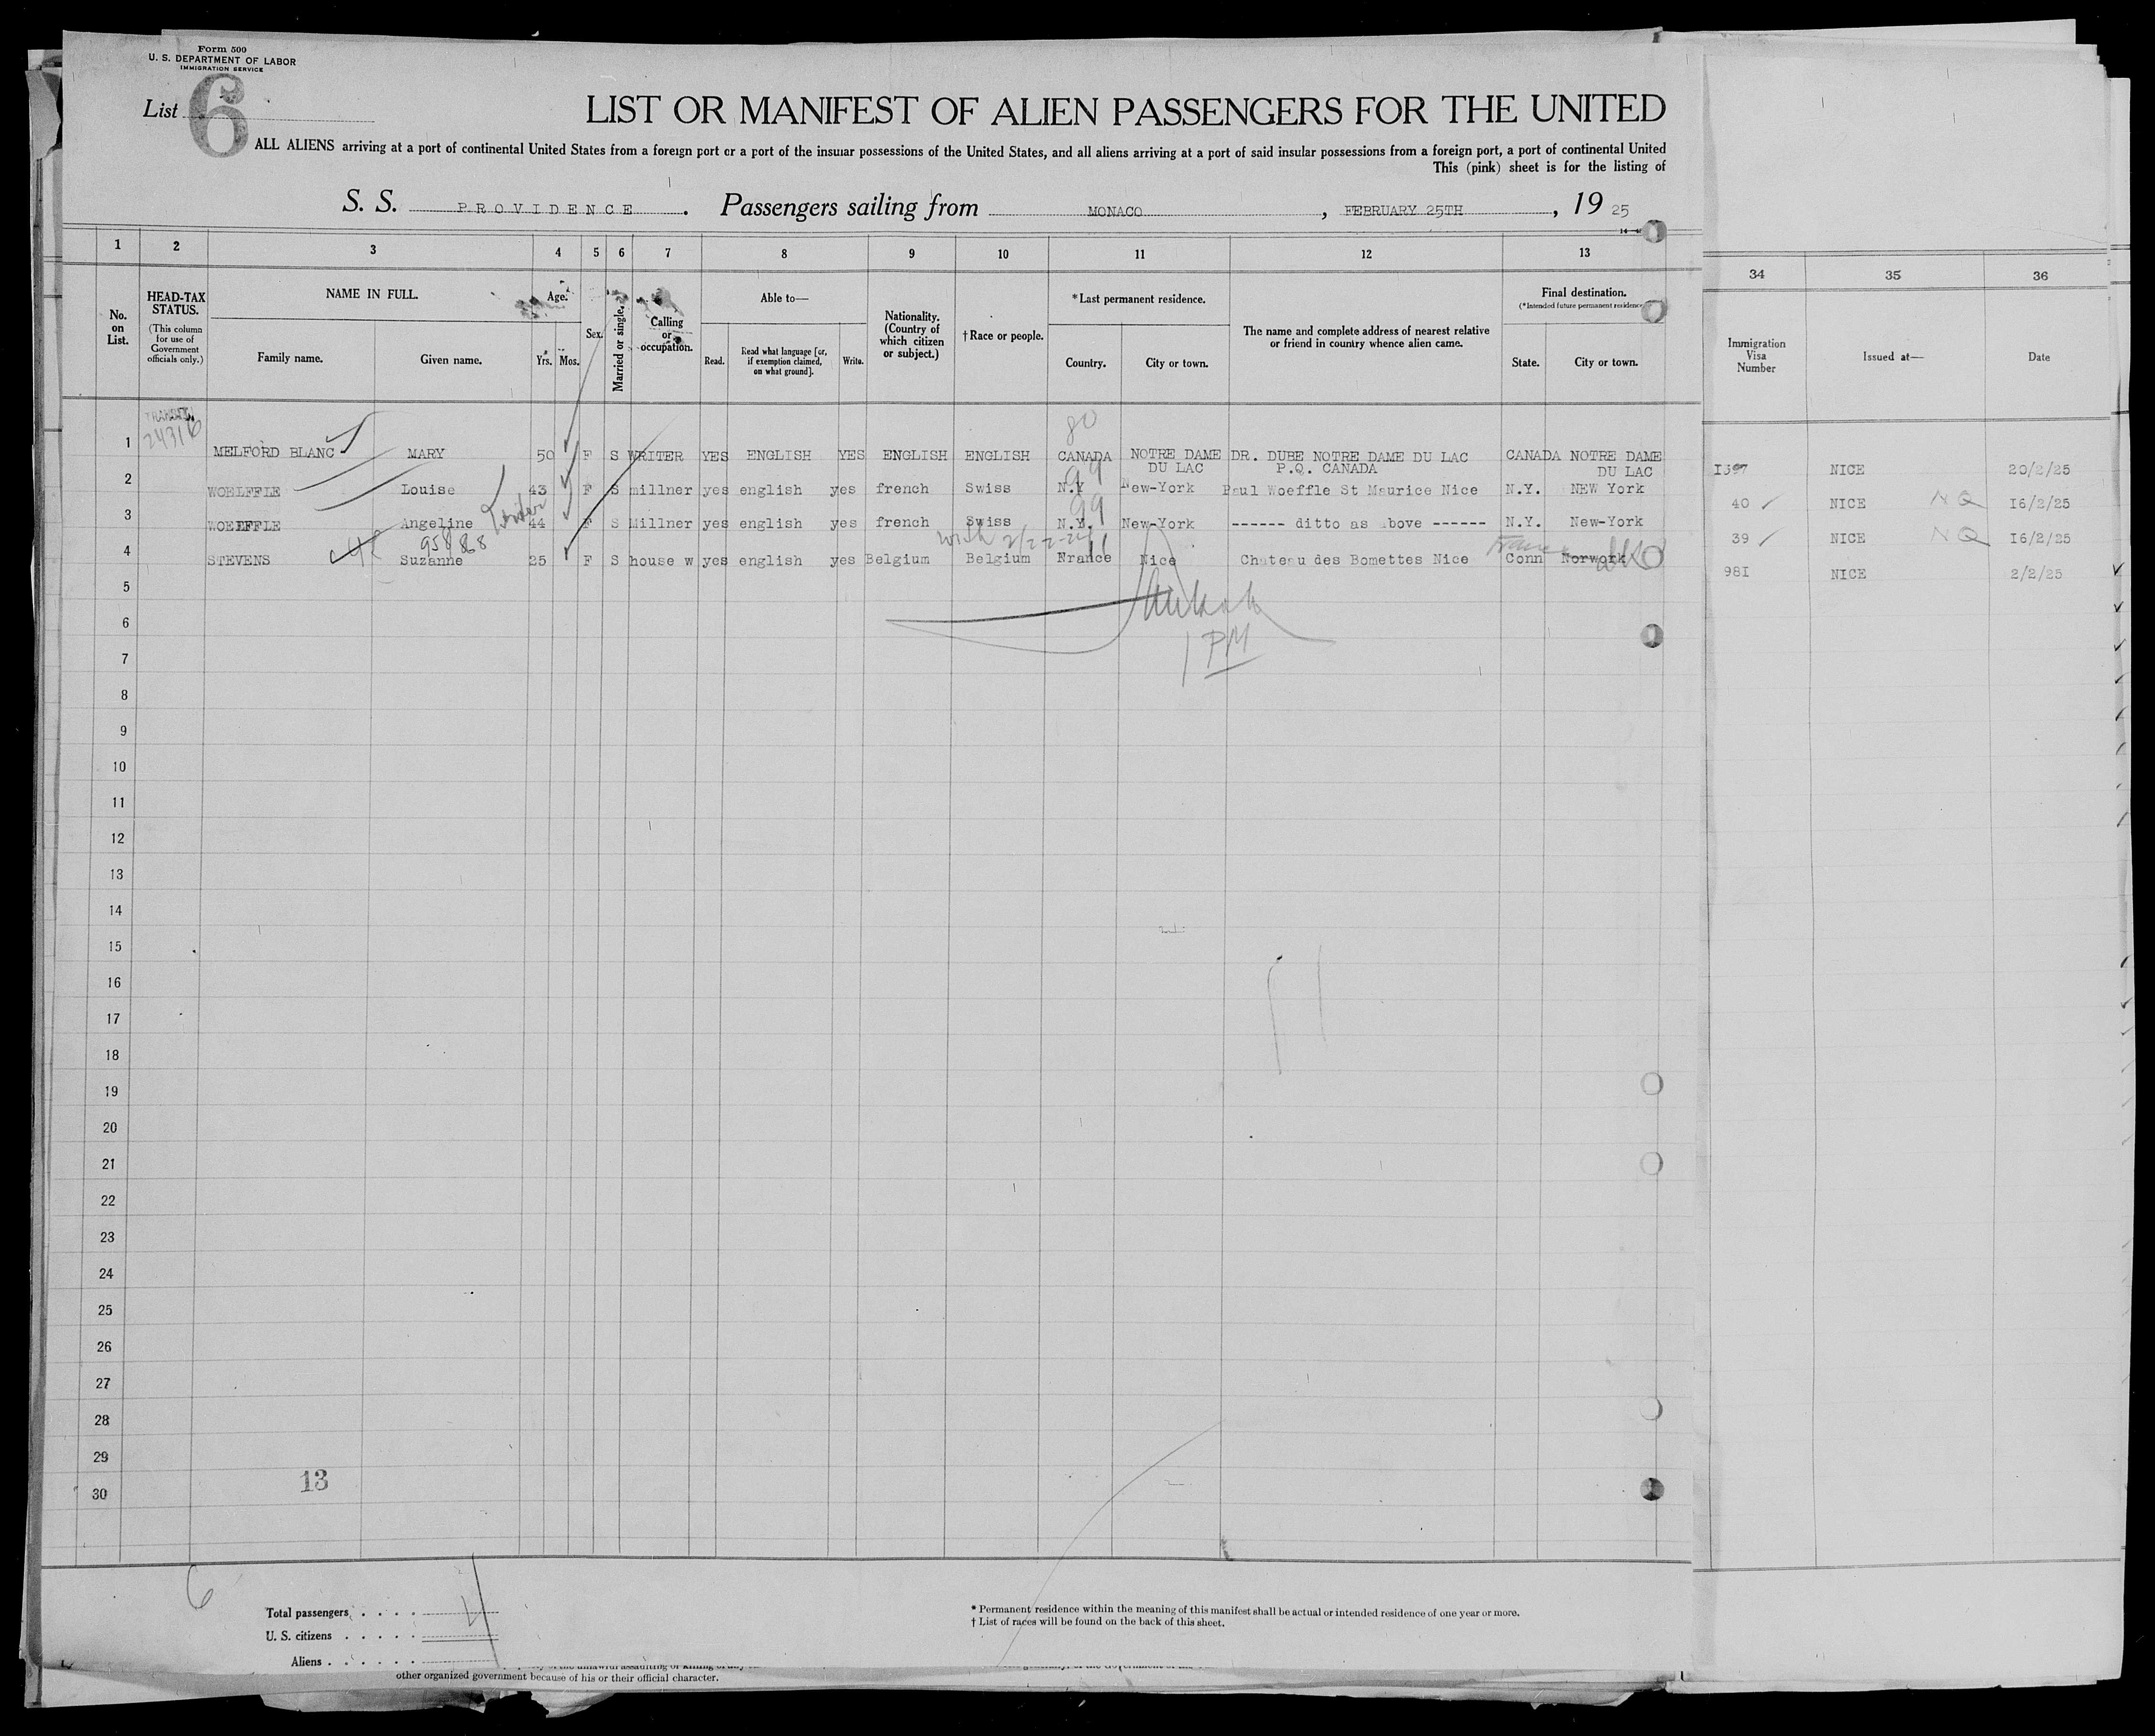 Form 500
U. S. DEPARTMENT OF LABOR
IMMIGRATION SERVICE
List 6
LIST OR MANIFEST OF ALIEN PASSENGERS FOR THE UNITED
ALL ALIENS arriving at a port of continental United States from a foreign port or a port of the insular possessions of the United States, and all aliens arriving at a port of said insular possessions from a foreign port, a port of continental United
This (pink) sheet is for the listing of
S. S. PROVIDENCE. Passengers sailing from MONACO, FEBRUARY 25TH, 19 25
1 2 3 4 5 6 7 8 9 10 11 12 13 34 35 36
No. on List.
HEAD-TAX STATUS.
(This column for use of Government officials only.)
NAME IN FULL.
Family name. Given name.
Age.
Yrs. Mos.
Sex.
Married or single.
Calling or occupation.
Able to—
Read. Read what language [or, if exemption claimed, on what ground]. Write.
Nationality. (Country of which citizen or subject.)
†Race or people.
*Last permanent residence.
Country. City or town.
The name and complete address of nearest relative or friend in country whence alien came.
Final destination.
(*Intended future permanent residence
State. City or town.
Immigration Visa Number
Issued at—
Date
TRANSIT
24316
80
1 MELFORD BLANC MARY 50 F S WRITER YES ENGLISH YES ENGLISH ENGLISH CANADA NOTRE DAME DU LAC DR. DUBE NOTRE DAME DU LAC P.Q. CANADA CANADA NOTRE DAME DU LAC 1307 NICE 20/2/25
99
2 WOELFFLE Louise 43 F S millner yes english yes french Swiss N.Y New-York Paul Woeffle St Maurice Nice N.Y. NEW York 40 NICE NQ I6/2/25
99
3 WOELFFLE Angeline 44 F S Millner yes english yes french Swiss N.Y. New-York ------ ditto as above ------ N.Y. New-York 39 NICE NQ I6/2/25
4 STEVENS Suzanne 25 F S house w yes english yes Belgium Belgium France Nice Chateau des Bomettes Nice Conn Norwork 98I NICE 2/2/25
5
6
1 PM
7
8
9
10
11
12
13
14
15
16
17
18
19
20
21
22
23
24
25
26
27
28
29
13
30
6
Total passengers . . . . 4
U. S. citizens . . . . .
Aliens . . . . . .
* Permanent residence within the meaning of this manifest shall be actual or intended residence of one year or more.
† List of races will be found on the back of this sheet.
other organized government because of his or their official character.